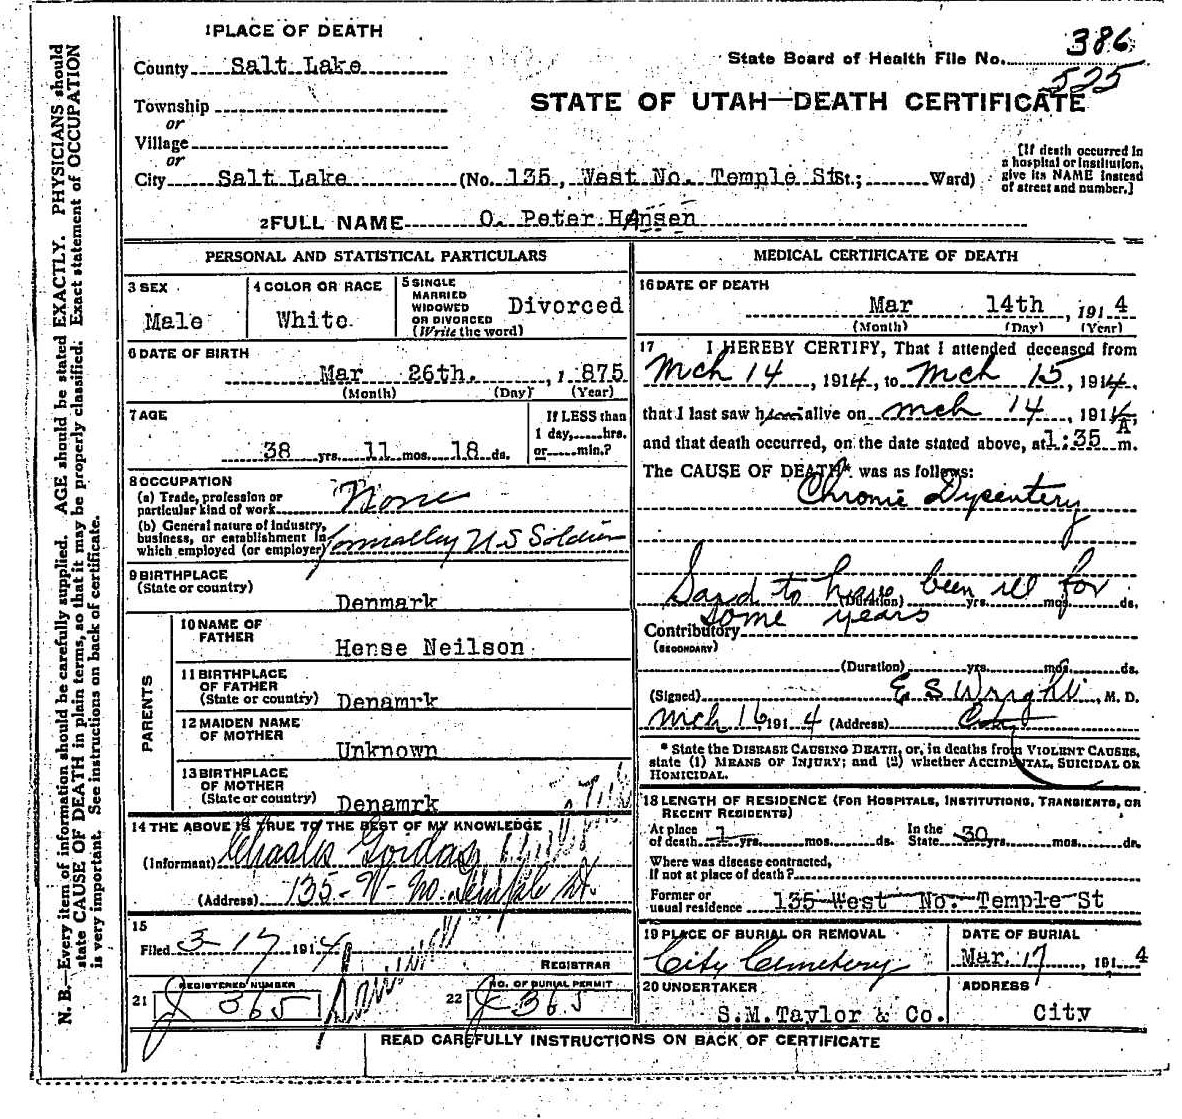 1 PLACE OF DEATH
State Board of Health File No. 386
525
County Salt Lake
STATE OF UTAH—DEATH CERTIFICATE
Township
or
Village
or
City Salt Lake (No. 135, West No. Temple St St.; Ward)
[If death occurred in
a hospital or institution,
give its NAME instead
of street and number.]
2 FULL NAME O. Peter Hansen
PERSONAL AND STATISTICAL PARTICULARS
3 SEX
Male
4 COLOR OR RACE
White
5 SINGLE
MARRIED
WIDOWED
OR DIVORCED
(Write the word)
Divorced
6 DATE OF BIRTH
Mar 26th. , 1 875
(Month) (Day) (Year)
7 AGE
38 yrs. 11 mos. 18 ds.
If LESS than
1 day, hrs.
or min.?
8 OCCUPATION
(a) Trade, profession or
particular kind of work None
(b) General nature of industry,
business, or establishment in
which employed (or employer) Formalley U S Soldier
9 BIRTHPLACE
(State or country)
Denmark
PARENTS
10 NAME OF
FATHER
Hense Neilson
11 BIRTHPLACE
OF FATHER
(State or country) Denamrk
12 MAIDEN NAME
OF MOTHER
Unknown
13 BIRTHPLACE
OF MOTHER
(State or country) Denamrk
14 THE ABOVE IS TRUE TO THE BEST OF MY KNOWLEDGE
(Informant) Charles Gordan
(Address) 135- W- No. Temple St.
15
Filed 3-17 1914
REGISTRAR
21 REGISTERED NUMBER
J 365
22 NO. OF BURIAL PERMIT
J 365
MEDICAL CERTIFICATE OF DEATH
16 DATE OF DEATH
Mar 14th , 191 4
(Month) (Day) (Year)
17 I HEREBY CERTIFY, That I attended deceased from
Mch 14 , 1914, to Mch 15 , 1914,
that I last saw h alive on mch 14 , 1914
and that death occurred, on the date stated above, at 1:35 A m.
The CAUSE OF DEATH* was as follows:
Chronic Dysentery
Said to have been ill for
(Duration) yrs. mos. ds.
some years
Contributory
(SECONDARY)
(Duration) yrs. mos. ds.
(Signed) E S Wright , M. D.
Mch 16 191 4 (Address) City
* State the DISEASE CAUSING DEATH, or, in deaths from VIOLENT CAUSES,
state (1) MEANS OF INJURY; and (2) whether ACCIDENTAL, SUICIDAL OR
HOMICIDAL.
18 LENGTH OF RESIDENCE (FOR HOSPITALS, INSTITUTIONS, TRANSIENTS, OR
RECENT RESIDENTS)
At place
of death 1 yrs. mos. ds. In the
State 30 yrs. mos. ds.
Where was disease contracted,
If not at place of death?
Former or
usual residence 135 West No. Temple St
19 PLACE OF BURIAL OR REMOVAL
City Cemetery
DATE OF BURIAL
Mar. 17 , 191 4
20 UNDERTAKER
S.M. Taylor & Co.
ADDRESS
City
READ CAREFULLY INSTRUCTIONS ON BACK OF CERTIFICATE
N. B.—Every item of information should be carefully supplied. AGE should be stated EXACTLY. PHYSICIANS should
state CAUSE OF DEATH in plain terms, so that it may be properly classified. Exact statement of OCCUPATION
is very important. See instructions on back of certificate.